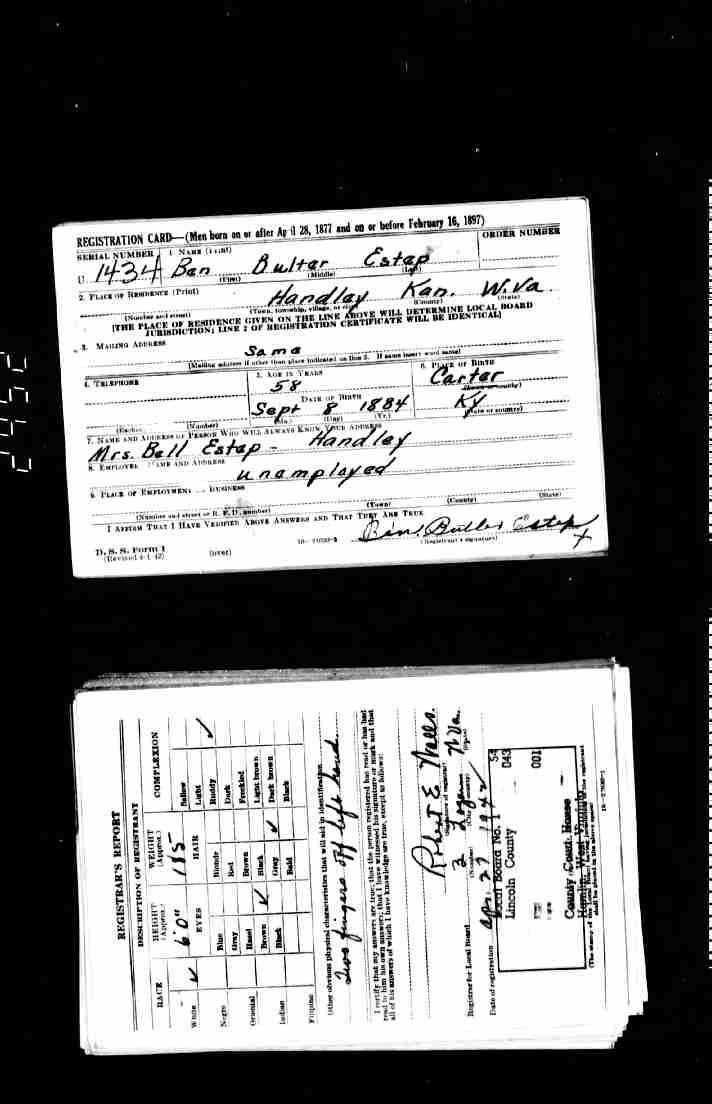 REGISTRATION CARD—(Men born on or after April 28, 1877 and on or before February 16, 1897)
SERIAL NUMBER 1. NAME (Print) ORDER NUMBER
U 1434 Ben Bulter Estep
(First) (Middle) (Last)
2. PLACE OF RESIDENCE (Print)
Handley Kan. W.Va.
(Number and street) (Town, township, village, or city) (County) (State)
[THE PLACE OF RESIDENCE GIVEN ON THE LINE ABOVE WILL DETERMINE LOCAL BOARD
JURISDICTION; LINE 2 OF REGISTRATION CERTIFICATE WILL BE IDENTICAL]
3. MAILING ADDRESS
Same
[Mailing address if other than place indicated on line 2. If same insert word same]
4. TELEPHONE 5. AGE IN YEARS 6. PLACE OF BIRTH
58 Carter
DATE OF BIRTH (Town or county)
Sept 8 1884 Ky
(Exchange) (Number) (Mo.) (Day) (Yr.) (State or country)
7. NAME AND ADDRESS OF PERSON WHO WILL ALWAYS KNOW YOUR ADDRESS
Mrs. Bell Estep - Handley
8. EMPLOYER'S NAME AND ADDRESS
unemployed
9. PLACE OF EMPLOYMENT OR BUSINESS
(Number and street or R. F. D. number) (Town) (County) (State)
I AFFIRM THAT I HAVE VERIFIED ABOVE ANSWERS AND THAT THEY ARE TRUE
Ben. Butler Estep
X
D. S. S. Form 1
(Revised 4-1-42) (over) 16—21630-2 (Registrant's signature)
REGISTRAR'S REPORT
DESCRIPTION OF REGISTRANT
RACE HEIGHT (Approx.) WEIGHT (Approx.) COMPLEXION
6'0" 185 Sallow
White ✓ EYES HAIR Light
Negro Blue Blonde Ruddy ✓
Gray Red Dark
Oriental Hazel Brown Freckled
Brown ✓ Black Light brown
Indian Black Gray ✓ Dark brown
Filipino Bald Black
Other obvious physical characteristics that will aid in identification
Two fingers off left hand
I certify that my answers are true; that the person registered has read or has had
read to him his own answers; that I have witnessed his signature or mark and that
all of his answers of which I have knowledge are true, except as follows:
Robert E. Wells.
(Signature of registrar)
Registrar for Local Board 2 Logan W.Va.
(Number) (City or county) (State)
Date of registration Apr. 27 1942
Local Board No. 1 54
Lincoln County 043
001
County Court House
Hamlin, West Virginia
(The stamp of the Local Board having jurisdiction of the registrant
shall be placed in the above space)